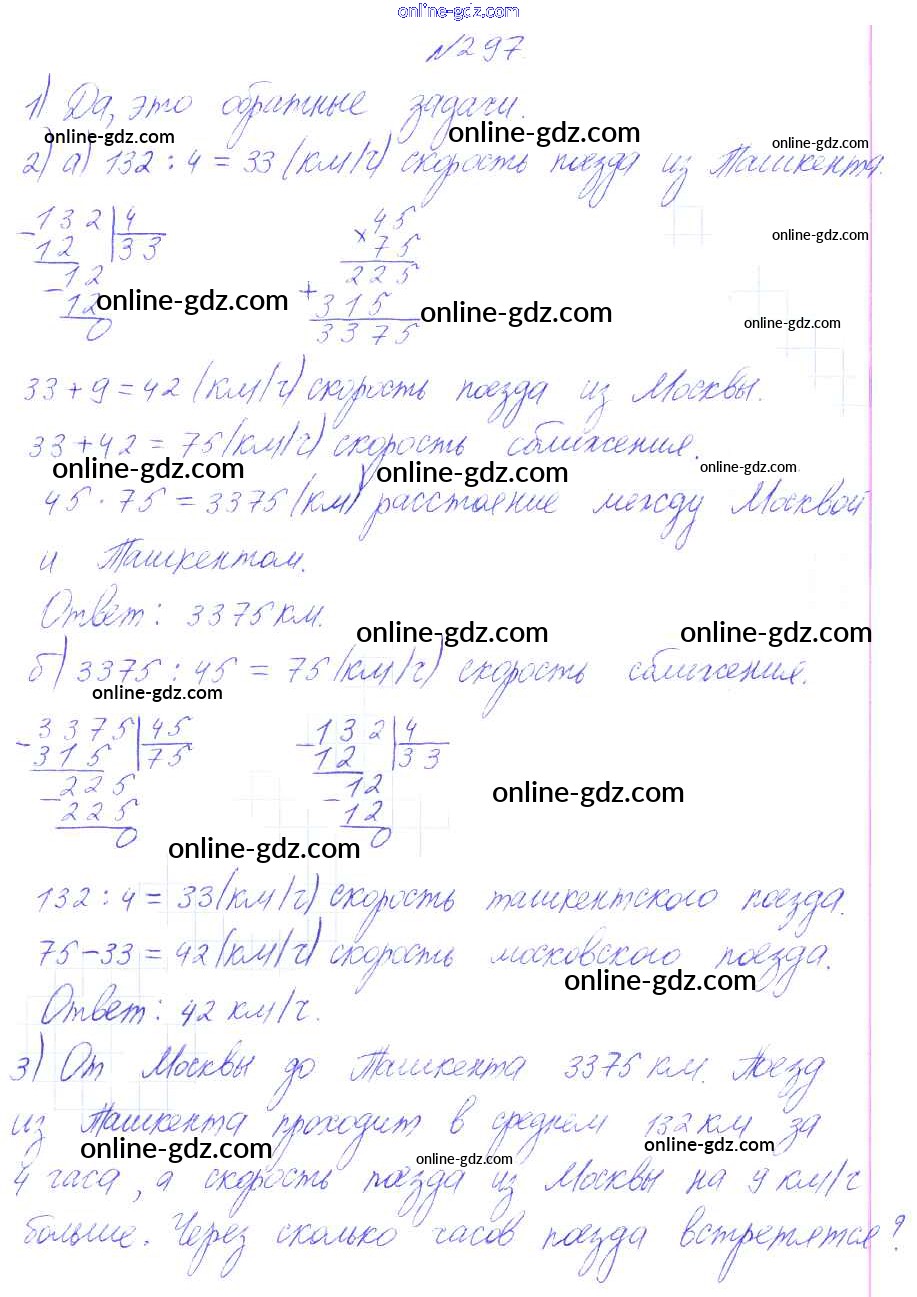 online-gdz.com
№297.
1) Да, это обратные задачи.
online-gdz.com online-gdz.com online-gdz.com
2) а) 132 : 4 = 33 (км/ч) скорость поезда из Ташкента.
- 132 | 4 × 45
12 33 75 online-gdz.com
- 12 225
12 online-gdz.com + 315 online-gdz.com online-gdz.com
0 3375
33 + 9 = 42 (км/ч) скорость поезда из Москвы.
33 + 42 = 75 (км/ч) скорость сближения.
online-gdz.com online-gdz.com online-gdz.com
45 · 75 = 3375 (км) расстояние между Москвой
и Ташкентом.
Ответ: 3375 км.
online-gdz.com online-gdz.com
б) 3375 : 45 = 75 (км/ч) скорость сближения.
online-gdz.com
- 3375 | 45 - 132 | 4
315 75 12 33
- 225 - 12
225 12 online-gdz.com
0 0
online-gdz.com
132 : 4 = 33 (км/ч) скорость ташкентского поезда.
75 - 33 = 42 (км/ч) скорость московского поезда.
online-gdz.com
Ответ: 42 км/ч.
3) От Москвы до Ташкента 3375 км. Поезд
из Ташкента проходит в среднем 132 км за
online-gdz.com online-gdz.com online-gdz.com
4 часа, а скорость поезда из Москвы на 9 км/ч
больше. Через сколько часов поезда встретятся?